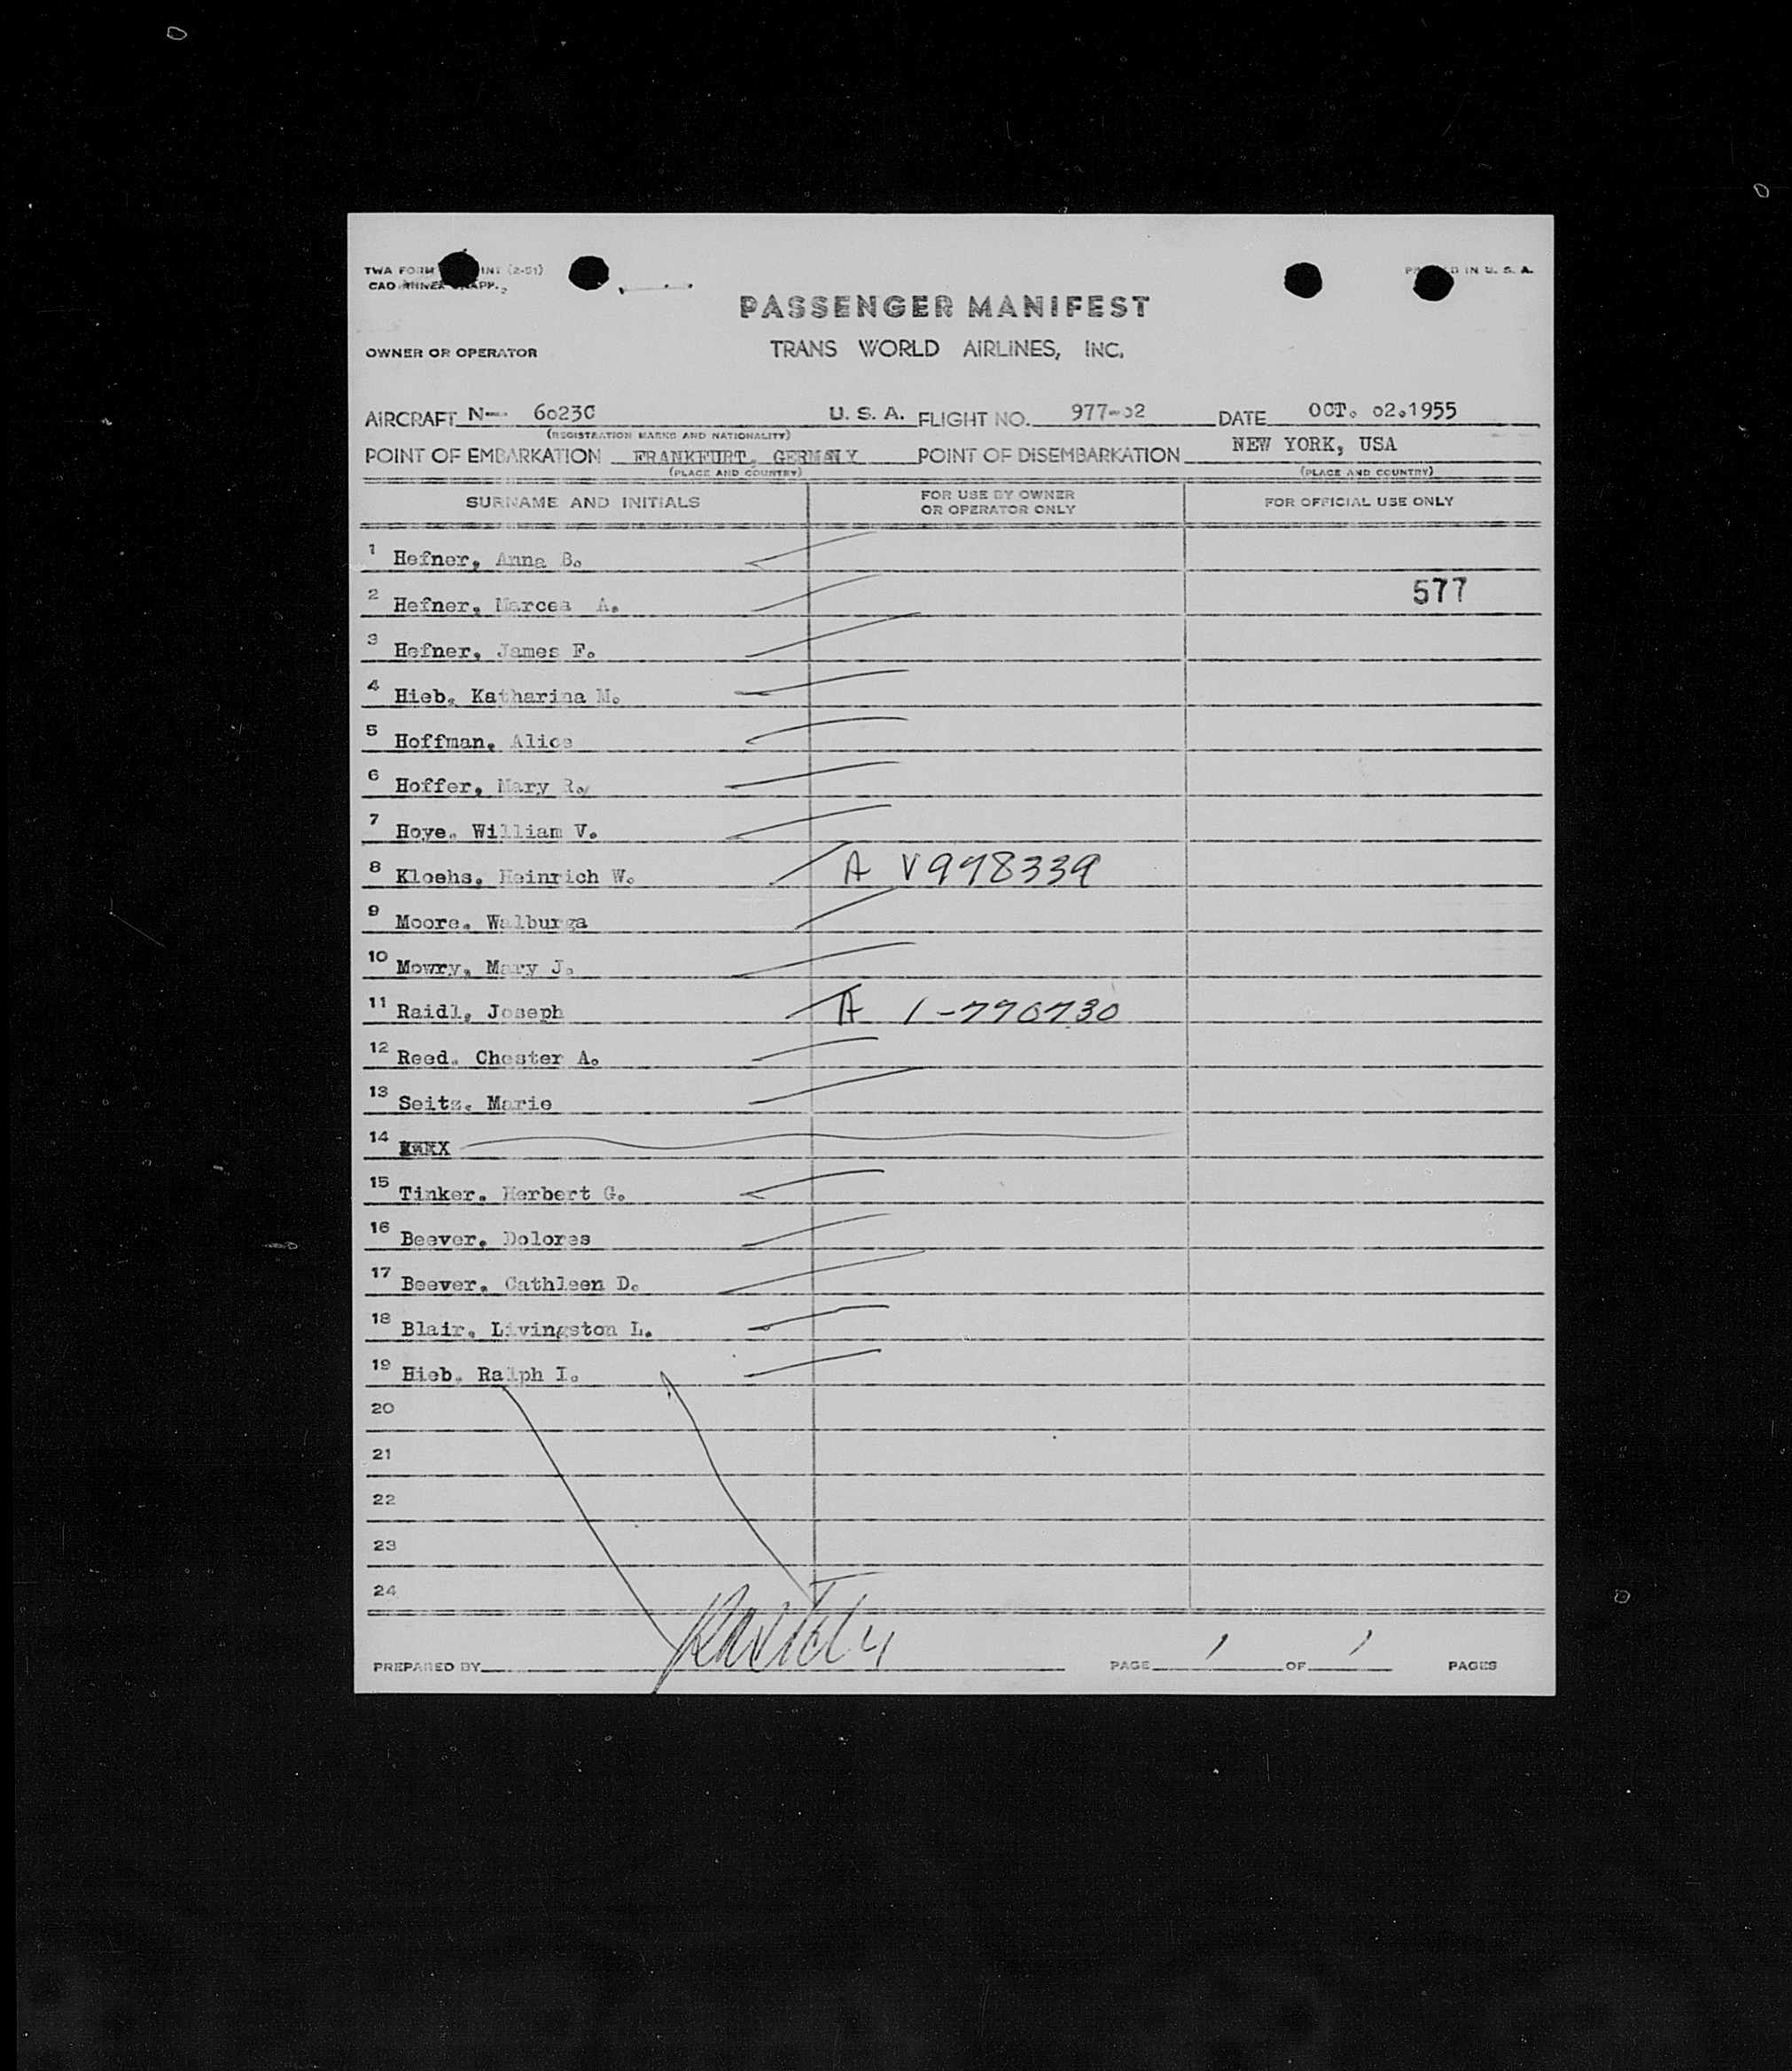 TWA FORM INT (2-51)
CAO ANNEX APP. 2
PRINTED IN U. S. A.
PASSENGER MANIFEST
OWNER OR OPERATOR TRANS WORLD AIRLINES, INC.
AIRCRAFT N-- 6023C U. S. A. FLIGHT NO. 977-02 DATE OCT. 02.1955
(REGISTRATION MARKS AND NATIONALITY)
POINT OF EMBARKATION FRANKFURT, GERMANY POINT OF DISEMBARKATION NEW YORK, USA
(PLACE AND COUNTRY) (PLACE AND COUNTRY)
SURNAME AND INITIALS FOR USE BY OWNER OR OPERATOR ONLY FOR OFFICIAL USE ONLY
1 Hefner, Anna B.
2 Hefner, Marcea A. 577
3 Hefner, James F.
4 Hieb, Katharina M.
5 Hoffman, Alice
6 Hoffer, Mary R.
7 Hoye, William V.
8 Kloehs, Heinrich W. A V998339
9 Moore, Walburga
10 Mowry, Mary J.
11 Raidl, Joseph A 1-770730
12 Reed, Chester A.
13 Seitz, Marie
14
15 Tinker, Herbert G.
16 Beever, Dolores
17 Beever, Cathleen D.
18 Blair, Livingston L.
19 Hieb, Ralph I.
20
21
22
23
24
PREPARED BY PAGE 1 OF 1 PAGES